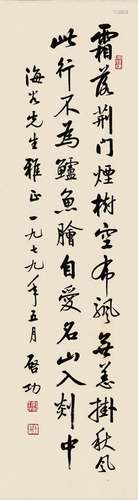 霜落荆门煙树空布颿無恙掛秋风
此行不为鱸魚鱠自爱名山入剡中
海岑先生雅正一九七九年五月 啓功